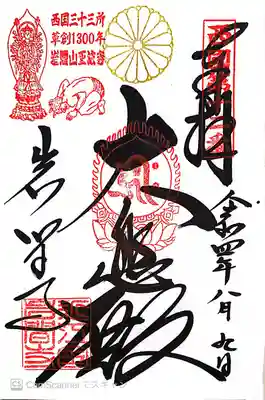 西国三十三所
草創1300年
岩間山正法寺
奉拝
令和四年八月九日
大悲殿
岩間寺
CS CamScanner でスキャン